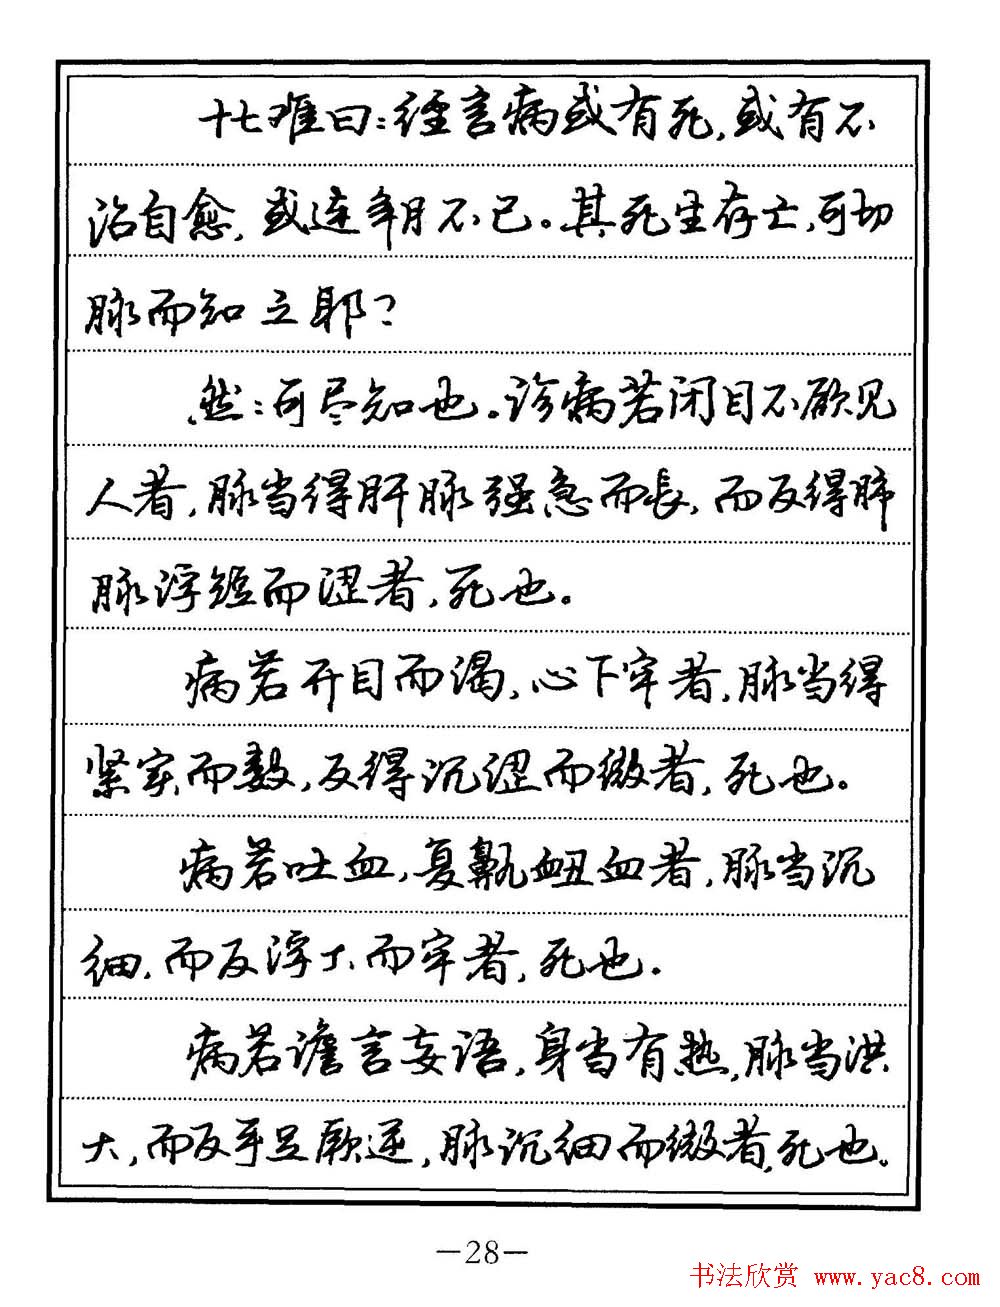 十七难曰：经言病或有死，或有不
治自愈，或连年月不已。其死生存亡，可切
脉而知之耶？
然：可尽知也。诊病若闭目不欲见
人者，脉当得肝脉强急而長，而反得肺
脉浮短而涩者，死也。
病若开目而渴，心下牢者，脉当得
紧实而数，反得沉涩而微者，死也。
病若吐血，复鼽衄血者，脉当沉
细，而反浮大而牢者，死也。
病若谵言妄语，身当有热，脉当洪
大，而反手足厥逆，脉沉细而微者，死也。
—28—
书法欣赏 www.yac8.com